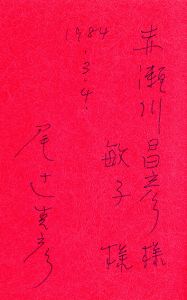 赤瀬川昌彦様
敏子様
1984.3.4.
尾辻克彦